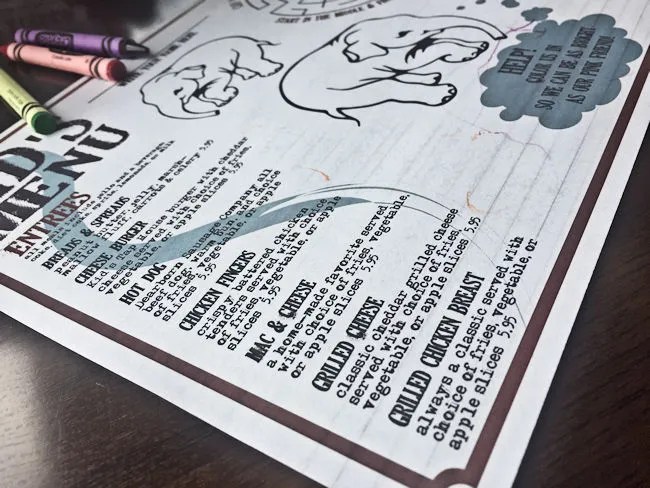 START IN THE MIDDLE &
HELP!
COLOR US IN
SO WE CAN BE AS BRIGHT
AS OUR PINK FRIEND!
MENU
ENTREES
BREADS & SPREADS
celery 5.95
CHEESE BURGER
Kid's Tap House burger with cheddar
cheese served with choice of fries,
vegetable, or apple slices 5.95
HOT DOG
Dearborn Sausage Company all
beef dog, served with choice
of fries, vegetable, or apple
slices 5.95
CHICKEN FINGERS
crispy, battered, chicken
tenders served with choice
of fries, vegetable, or apple
slices 5.95
MAC & CHEESE
a home-made favorite served
with choice of fries, vegetable,
or apple slices 5.95
GRILLED CHEESE
classic cheddar grilled cheese
served with choice of fries,
vegetable, or apple slices 5.95
GRILLED CHICKEN BREAST
always a classic served with
choice of fries, vegetable, or
apple slices 5.95